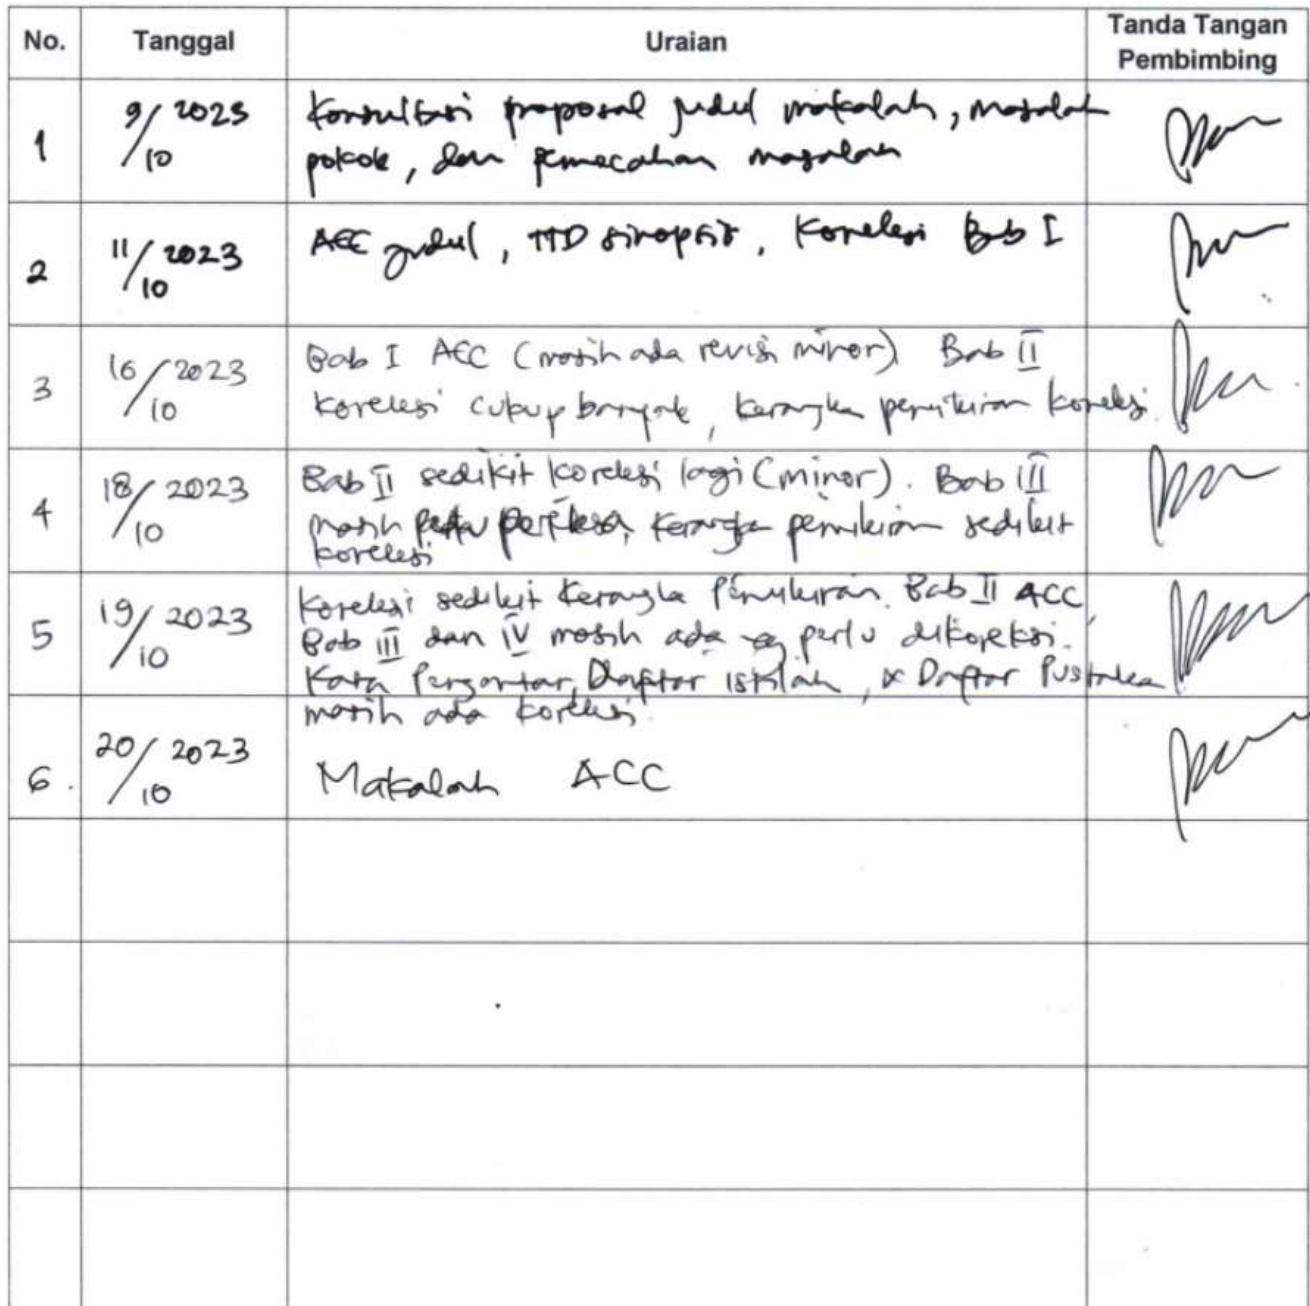 No. Tanggal Uraian Tanda Tangan
Pembimbing
1 9/10 2023 Konsultasi proposal judul makalah, masalah
pokok, dan pemecahan masalah
2 11/10 2023 ACC judul, TTD sinopsis, Koreksi Bab I
3 16/10 2023 Bab I ACC (masih ada revisi minor) Bab II
koreksi cukup banyak, kerangka pemikiran koreksi.
4 18/10 2023 Bab II sedikit koreksi lagi (minor). Bab III
masih perlu Kerangka pemikiran sedikit
koreksi
5 19/10 2023 Koreksi sedikit Kerangka Pemikiran. Bab II ACC
Bab III dan IV masih ada yg perlu dikoreksi.
Kata Pengantar, Daftar istilah, & Daftar Pustaka
masih ada koreksi.
6. 20/10 2023 Makalah ACC